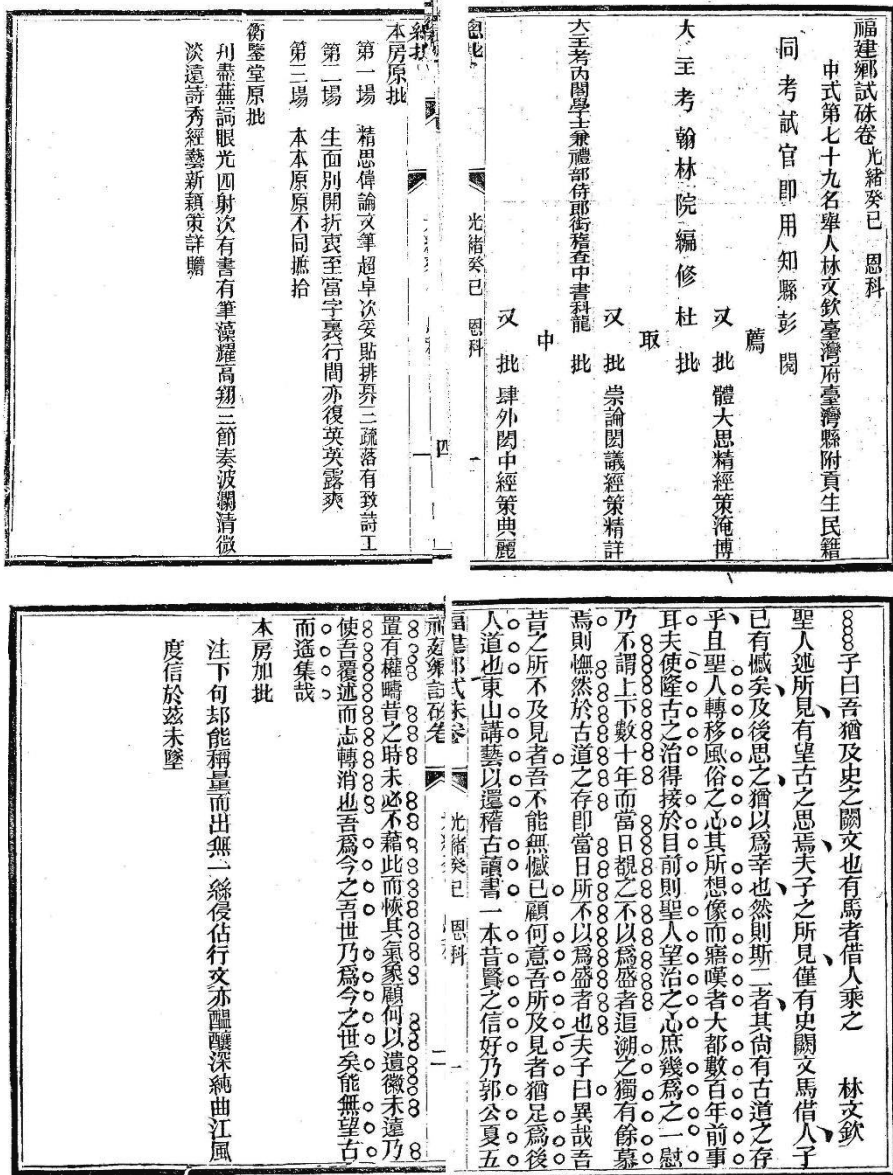 福建鄉試硃卷光緒癸巳 恩科
中式第七十九名舉人林文欽臺灣府臺灣縣附貢生民籍
同考試官即用知縣彭 閱
薦
大主考翰林院編修杜 批
又 批 體大思精經策淹博
取
大主考內閣學士兼禮部侍郎銜稽查中書科龍 批
又 批 崇論閎議經策精詳
中
又 批 肆外閎中經策典麗
總批
光緒癸巳 恩科
一
四
本房原批
第一場 精思偉論文筆超卓次妥貼排奡三疏落有致詩工
第二場 生面別開折衷至當字裏行間亦復英英露爽
第三場 本本原原不同摭拾
衡鑒堂原批
刊盡蕪詞眼光四射次有書有筆藻耀高翔三節奏波瀾清微
淡遠詩秀經藝新穎策詳贍
子曰吾猶及史之闕文也有馬者借人乘之 林文欽
聖人述所見有望古之思焉夫子之所見僅有史闕文馬借人子
已有慽矣及後思之猶以爲幸也然則斯二者其尙有古道之存
乎且聖人轉移風俗之心其所想像而寤嘆者大都數百年前事
耳夫使隆古之治得接於目前則聖人望治之心庶幾爲之一慰
乃不謂上下數十年而當日覩之不以爲盛者追溯之獨有餘慕
焉則憮然於古道之存即當日所不以爲盛者也夫子曰異哉吾
昔之所不及見者吾不能無憾已顧何意吾所及見者猶足爲後
人道也東山講藝以還稽古讀書一本昔賢之信好乃郭公夏五
福建鄉試硃卷
光緒癸巳 恩科
一
福建鄉試硃卷
二
置有權疇昔之時未必不藉此而恢其氣象顧何以遺徽未遠乃
使吾覆述而志轉消也吾爲今之吾世乃爲今之世矣能無望古
而遙集哉
本房加批
注下句却能稱量而出無一絲侵佔行文亦醞釀深純曲江風
度信於茲未墜